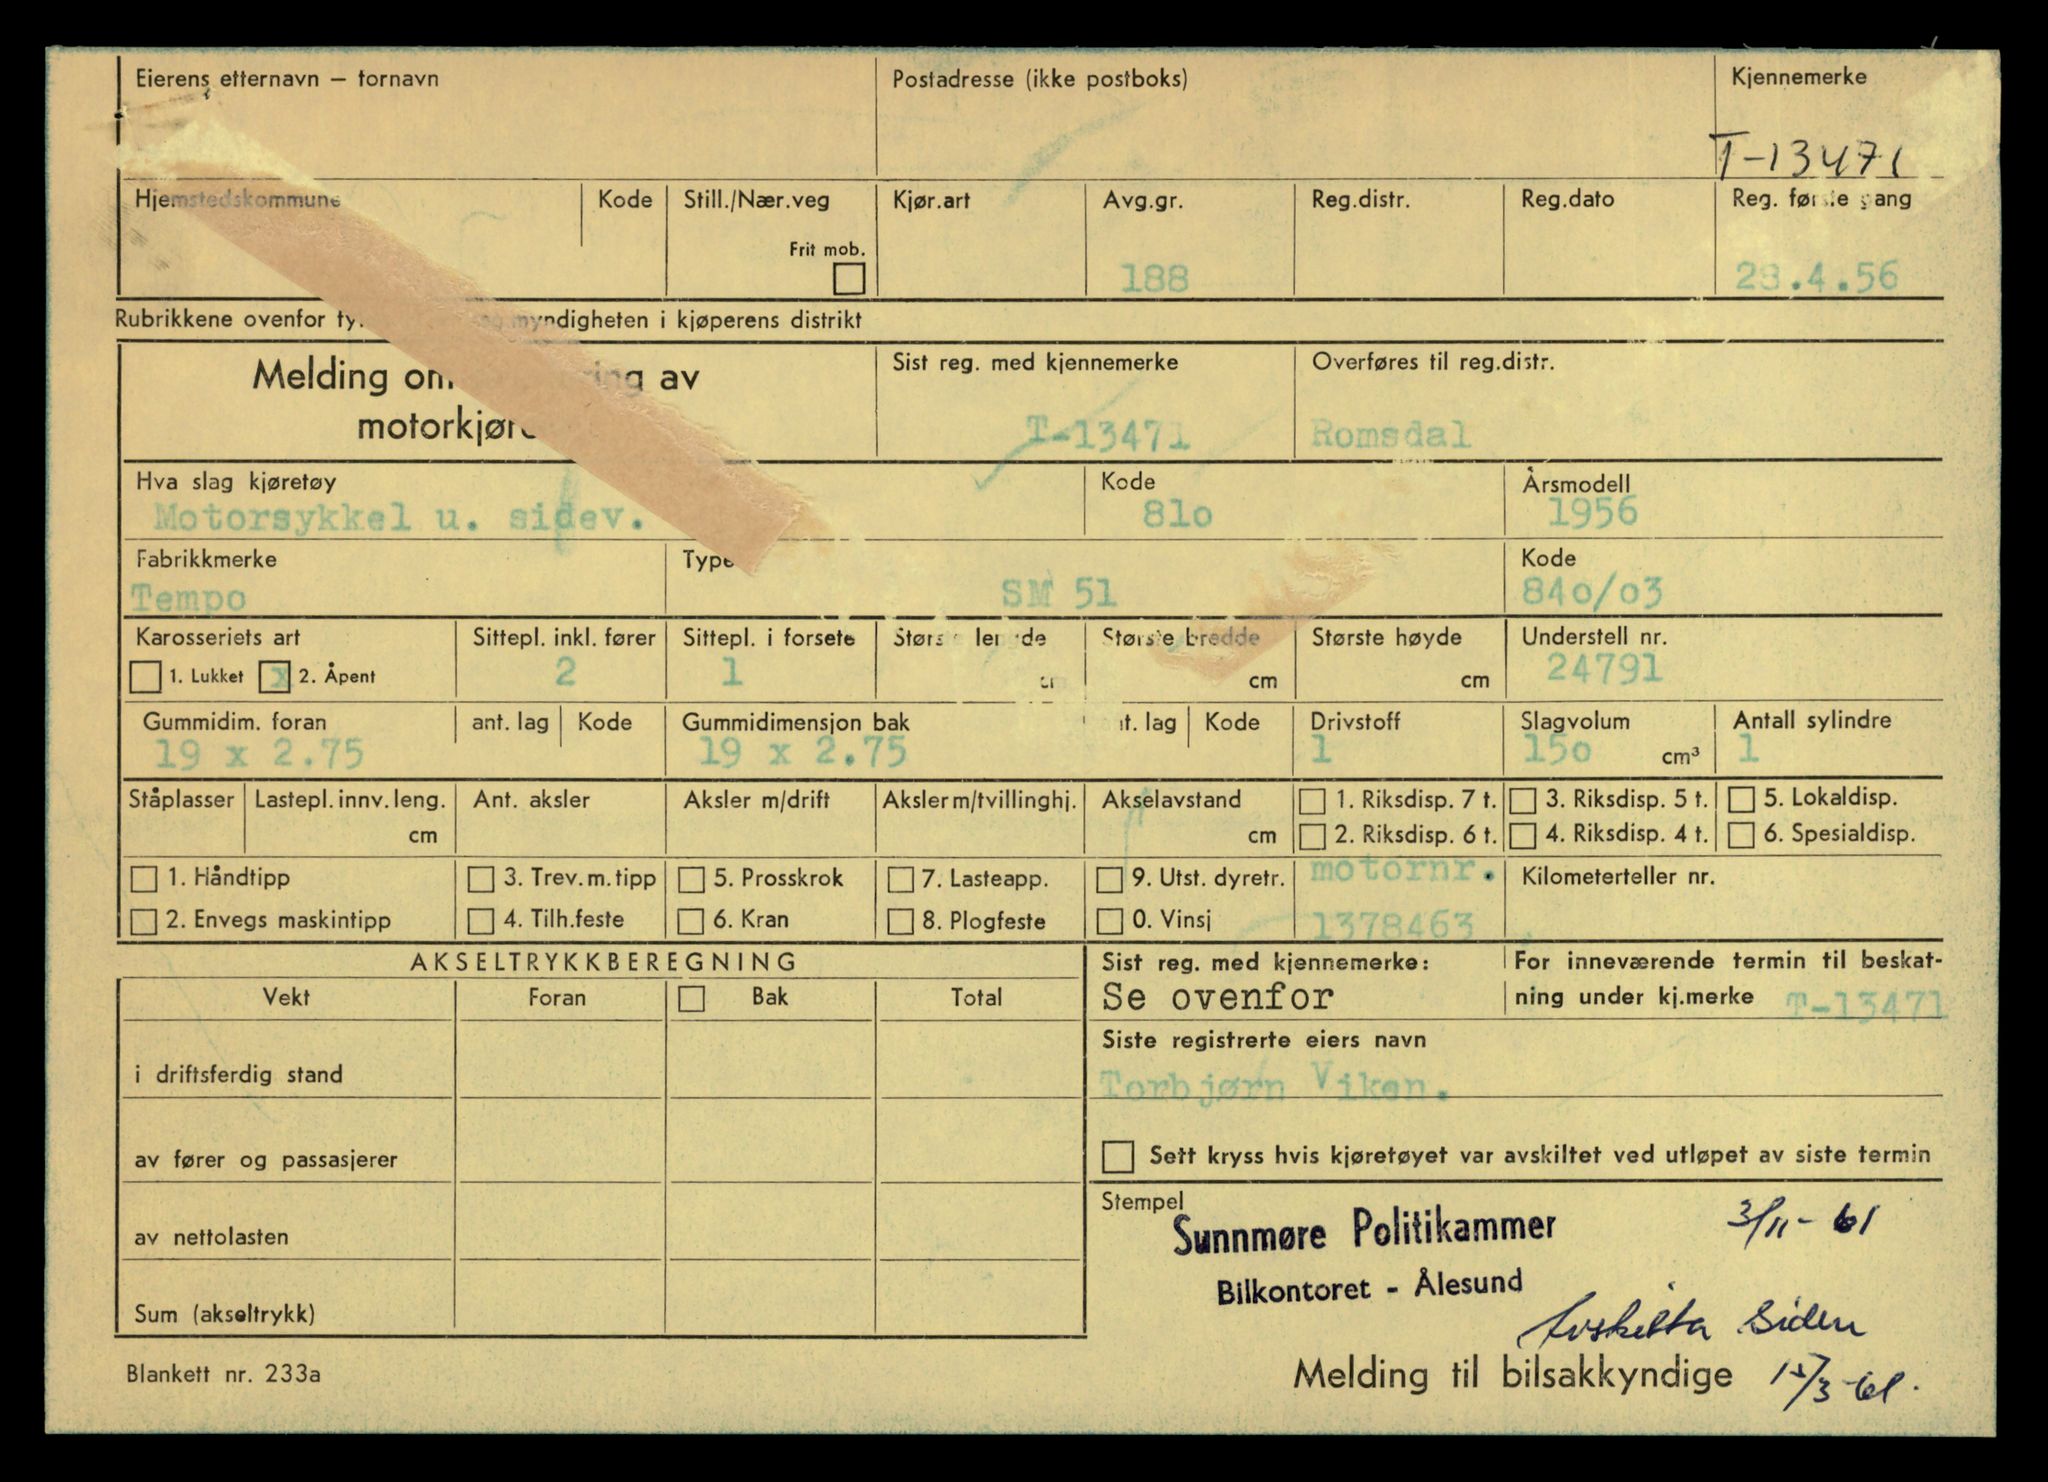 Eierens etternavn — fornavn Postadresse (ikke postboks) Kjennemerke
T-13471
Hjemstedskommune Kode Still./Nær.veg Kjør.art Avg.gr. Reg.distr. Reg.dato Reg. første gang
Frit mob.
188 28.4.56
Rubrikkene ovenfor myndigheten i kjøperens distrikt
Melding om av Sist reg. med kjennemerke Overføres til reg.distr.
T-13471 Romsdal
Hva slag kjøretøy Kode Årsmodell
Motorsykkel u. sidev. 81o 1956
Fabrikkmerke Type Kode
Tempo SM 51 84o/o3
Karosseriets art Sittepl. inkl. fører Sittepl. i forsete Største lengde Største bredde Største høyde Understell nr.
1. Lukket x 2. Åpent 2 1 cm cm cm 24791
Gummidim. foran ant. lag Kode Gummidimensjon bak ant. lag Kode Drivstoff Slagvolum Antall sylindre
19 x 2.75 19 x 2.75 1 15o cm³ 1
Ståplasser Lastepl. innv. leng. Ant. aksler Aksler m/drift Aksler m/tvillinghj. Akselavstand 1. Riksdisp. 7 t. 3. Riksdisp. 5 t. 5. Lokaldisp.
cm cm 2. Riksdisp. 6 t. 4. Riksdisp. 4 t. 6. Spesialdisp.
1. Håndtipp 3. Trev. m. tipp 5. Prosskrok 7. Lasteapp. 9. Utst. dyretr. motornr. Kilometerteller nr.
2. Envegs maskintipp 4. Tilh.feste 6. Kran 8. Plogfeste 0. Vinsj 1378463
AKSELTRYKKBEREGNING Sist reg. med kjennemerke: For inneværende termin til beskat-
Vekt Foran Bak Total Se ovenfor ning under kj.merke T-13471
Siste registrerte eiers navn
i driftsferdig stand Torbjørn Viken.
av fører og passasjerer Sett kryss hvis kjøretøyet var avskiltet ved utløpet av siste termin
Stempel
Sunnmøre Politikammer 3/11-61
av nettolasten
Bilkontoret - Ålesund
Sum (akseltrykk) Avskilta Siden
Blankett nr. 233a Melding til bilsakkyndige 15/3-61.